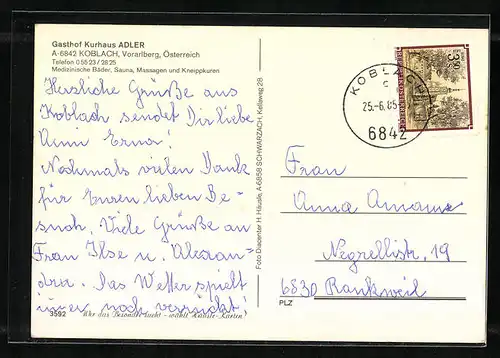 Gasthof Kurhaus ADLER
A-6842 KOBLACH, Vorarlberg, Österreich
Telefon 0 55 23 / 28 25
Medizinische Bäder, Sauna, Massagen und Kneippkuren
Herzliche Grüße aus
Koblach sendet Dir liebe
Anni Erna!
Nochmals vielen Dank
für Euren lieben Be-
such. Viele Grüße an
Frau Ilse u. Alexan-
dra. Das Wetter spielt
immer noch verrückt!
3592
Wer das Besondere sucht - wählt Häusle-Karten!
Foto Diacenter H. Häusle, A-6858 SCHWARZACH, Kellaweg 28
KOBLACH
c
25.-6.85
6842
Frau
Anna Amann
Negrellistr. 19
6830 Rankweil
PLZ